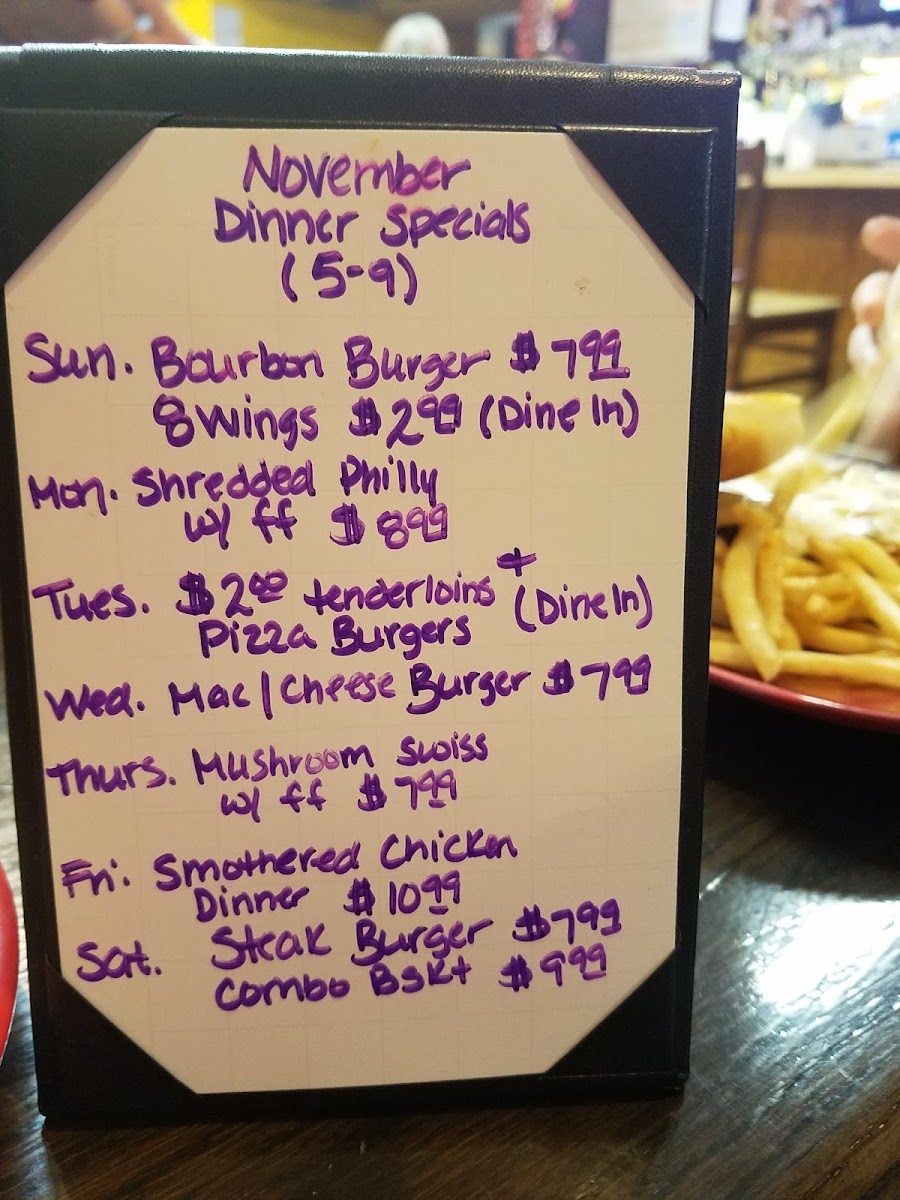 November
Dinner Specials
(5-9)
Sun. Bourbon Burger $7 99
8 wings $2 99 (Dine In)
Mon. Shredded Philly
w/ ff $8 99
Tues. $2 00 tenderloins + (Dine In)
Pizza Burgers
Wed. Mac/Cheese Burger $7 99
Thurs. Mushroom Swiss
w/ ff $7 99
Fri. Smothered Chicken
Dinner $10 99
Sat. Steak Burger $7 99
Combo Bskt $9 99